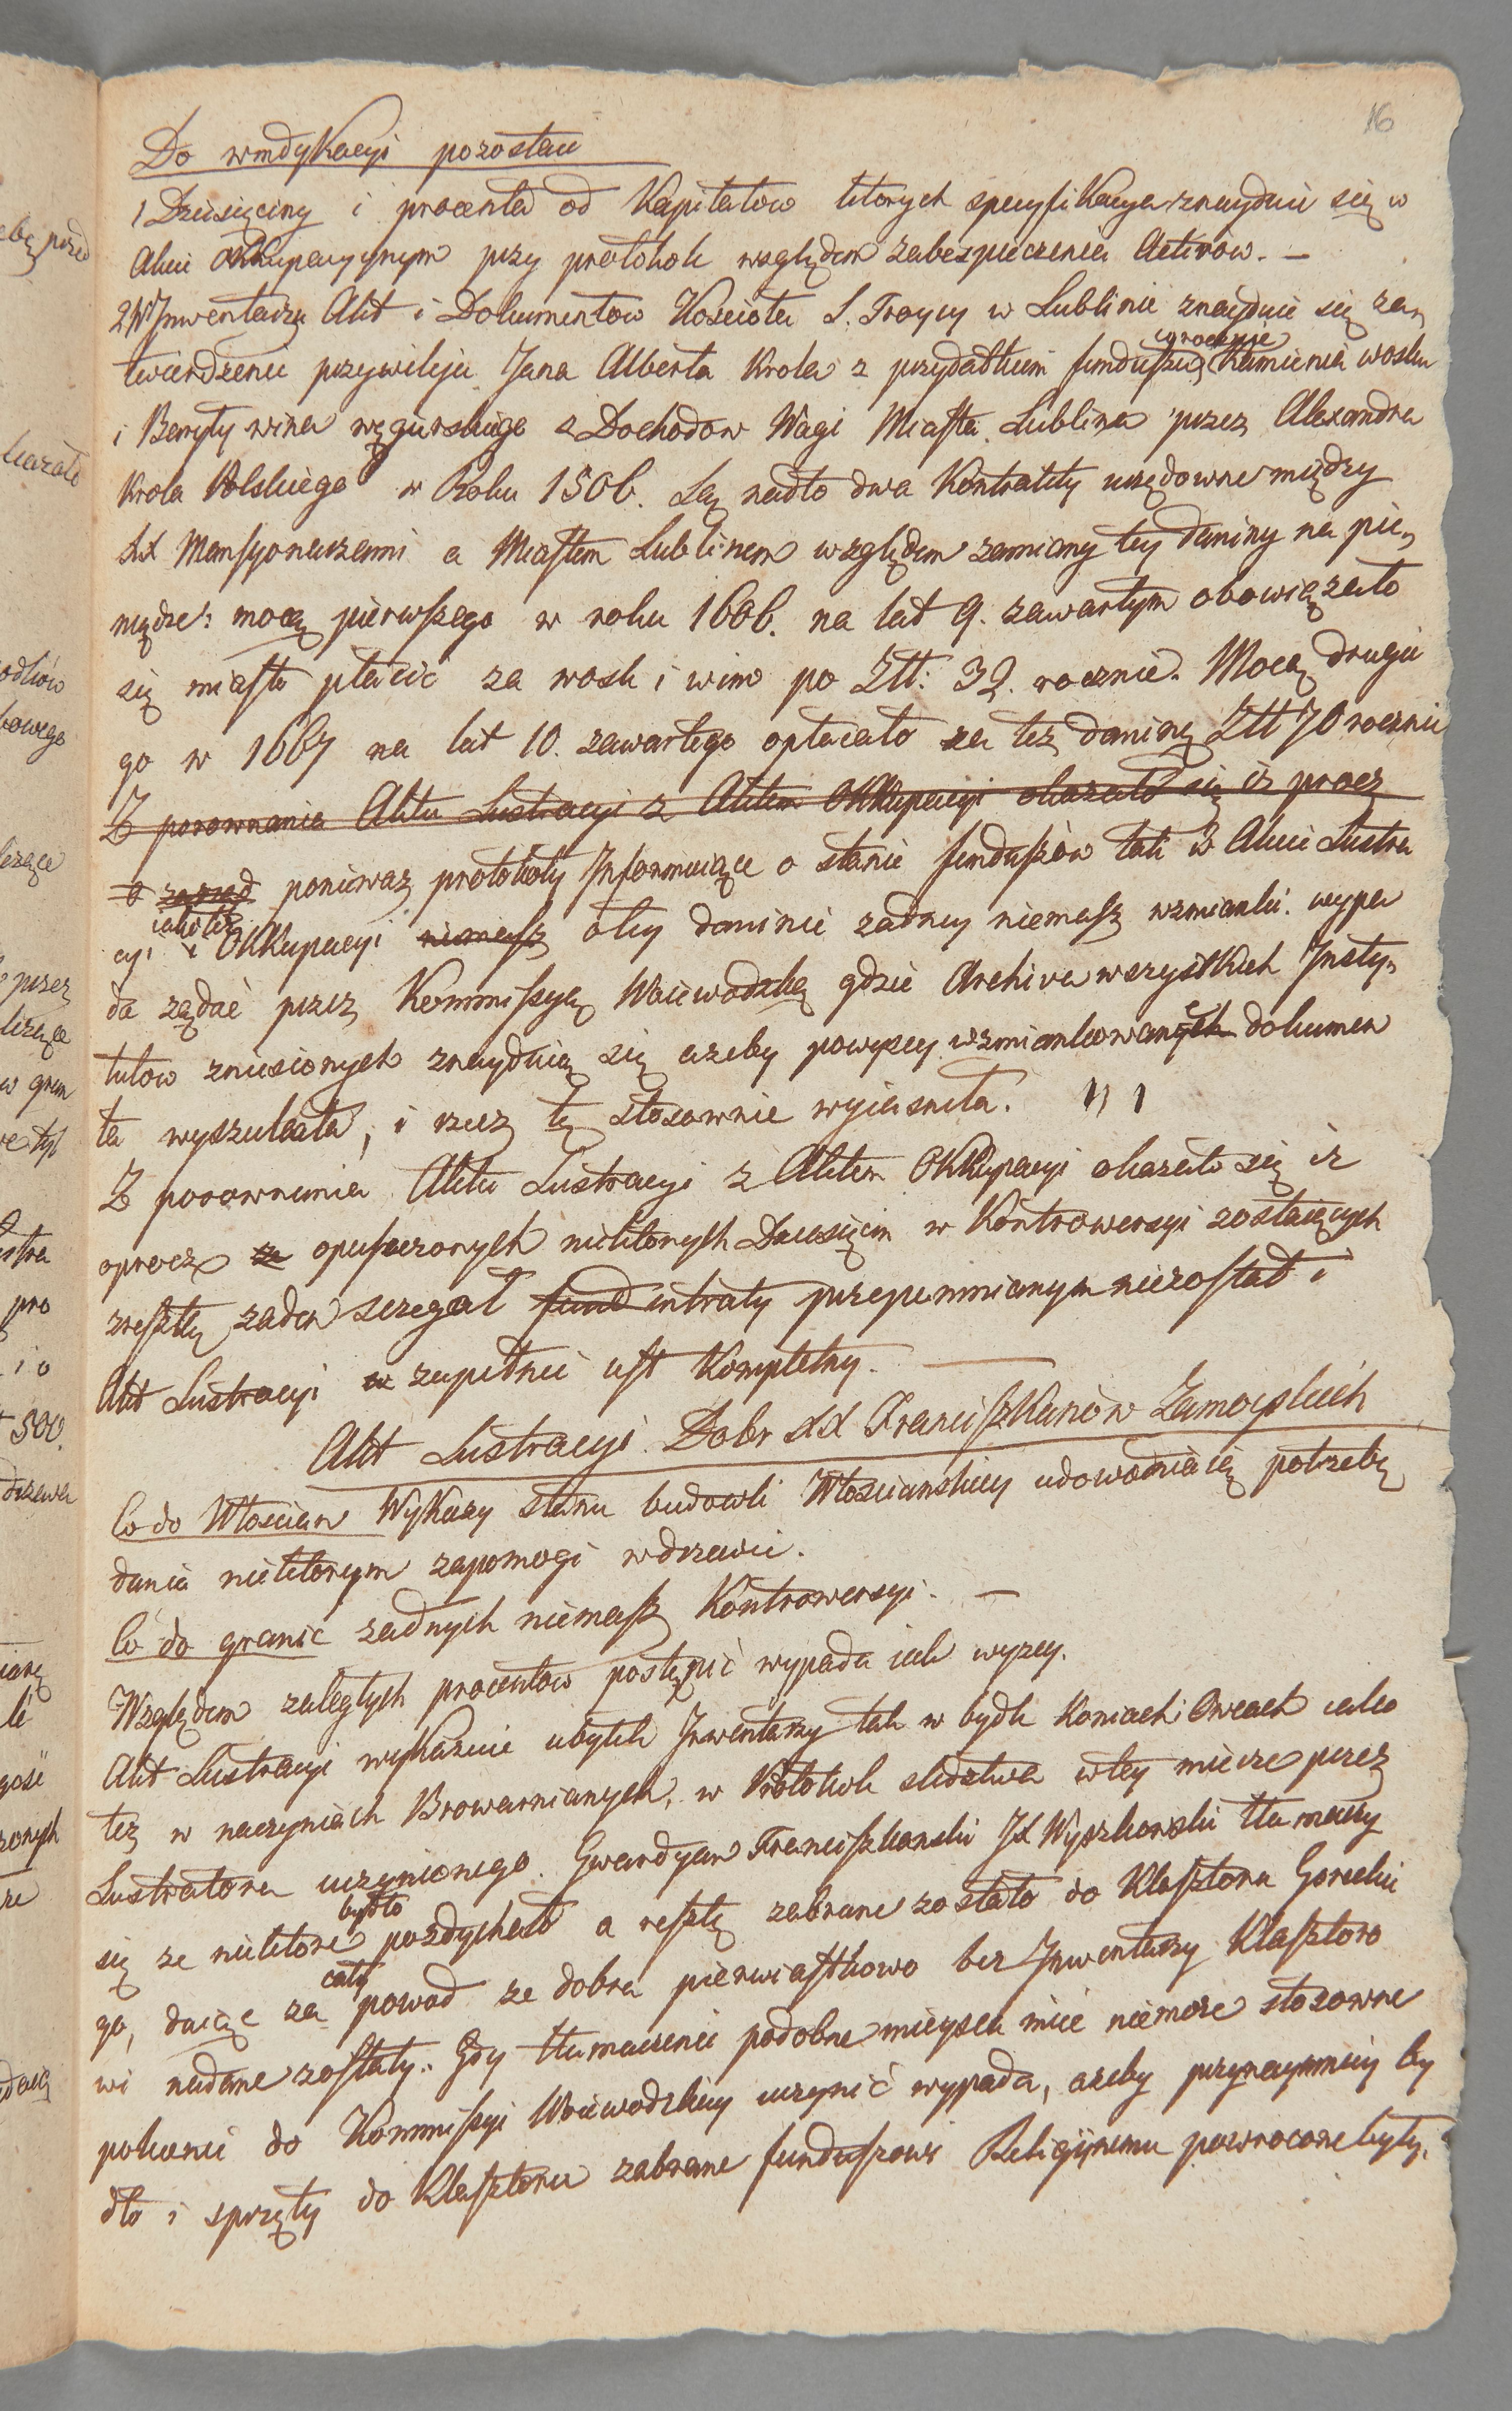 16
Do windykacyi pozostaie
1 Dziesięciny i procenta od Kapitałow ktorych specyfikacya znayduie się w
Akcie Okkupacyynym przy protokole względem zabespieczenia Activow. —
2 W Inwentarzu Akt i Dokumentow Kościoła S. Troycy w Lublinie znayduie się za„
twierdzenie przywileju Jana Alberta Krola z przydatkiem funduszu corocznie Kamienia wosku
i Beryły wina węgierskiego z Dochodow Wagi Miasta Lublina przez Alexandra
Krola Polskiego w Roku 1506. Są nadto dwa Kontrakty urzędowne między
XX Mansyonarzami a Miastem Lublinem względem zamiany tey daniny na pie„
niądze: mocą pierwszego w roku 1606. na lat 9. zawartym obowiązało
się miasto płacić za wosk i wino po Złł: 32. rocznie. Mocą drugie
go w 1667 na lat 10. zawartego opłacało za tęż daninę Złł 70 rocznie
Z porownania Aktu Lustracyi z Aktem Okkupacyi okazało się iż procz
o zarząd ponieważ protokoły Informuiące o stanie funduszów tak w Akcie Lustra
cyi iako też i Okkupacyi niemasz o tey daninie żadney niemasz wzmianki. wypa
da żądać przez Kommissyą Woiewodzką gdzie Archiva wszystkich Insty„
tutow zniesionych znayduią się ażeby powyzey wzmiankowane dokumen
ta wyszukała, i rzecz tę stosownie wyjasniła.
Z porownania Aktu Lustracyi z Aktem Okkupacyi okazało się iz
oprocz opuszczonych niektorych Dziesięcin w Kontrowersyi zostaiących
zresztą żaden szczegoł fund intraty przepomnianym niezostał i
Akt Lustracyi w zupełnie iest Kompletny. —
Akt Lustracyi Dobr XX Franciszkanów Zamoyskich
Co do Włoscian Wykazy stanu budowli Włościanskiey udowodniaią potrzebę
dania niektorym zapomogi w drzewie.
Co do granic żadnych niemasz Kontrowersyi. —
Względem zaległych procentow postąpić wypada iak wyzey.
Akt Lustracyi wykazuie ubytek Inwentarzy tak w bydle Koniach i Owcach iako
też w naczyniach Browarnianych, w Protokole sledztwa w tey mierze przez
Lustratora uczynionego. Gwardyan Franciszkanski JX Wyszkowski tłumaczy
się ze niektore bydło pozdychało a resztę zabrane zostało do Klasztoru Gorecku
go, daiąc za cały powod ze dobra pierwiastkowo bez Inwentarzy Klasztoro
wi nadane zostały. Gdy tłumaczenie podobne mieysca mieć niemoze stosowne
polecenie do Kommissyi Woiewodzkiey uczynić wypada, ażeby przynaymniey by
dło i sprzęty do Klasztoru zabrane funduszowi Religijnemu powrocone były.